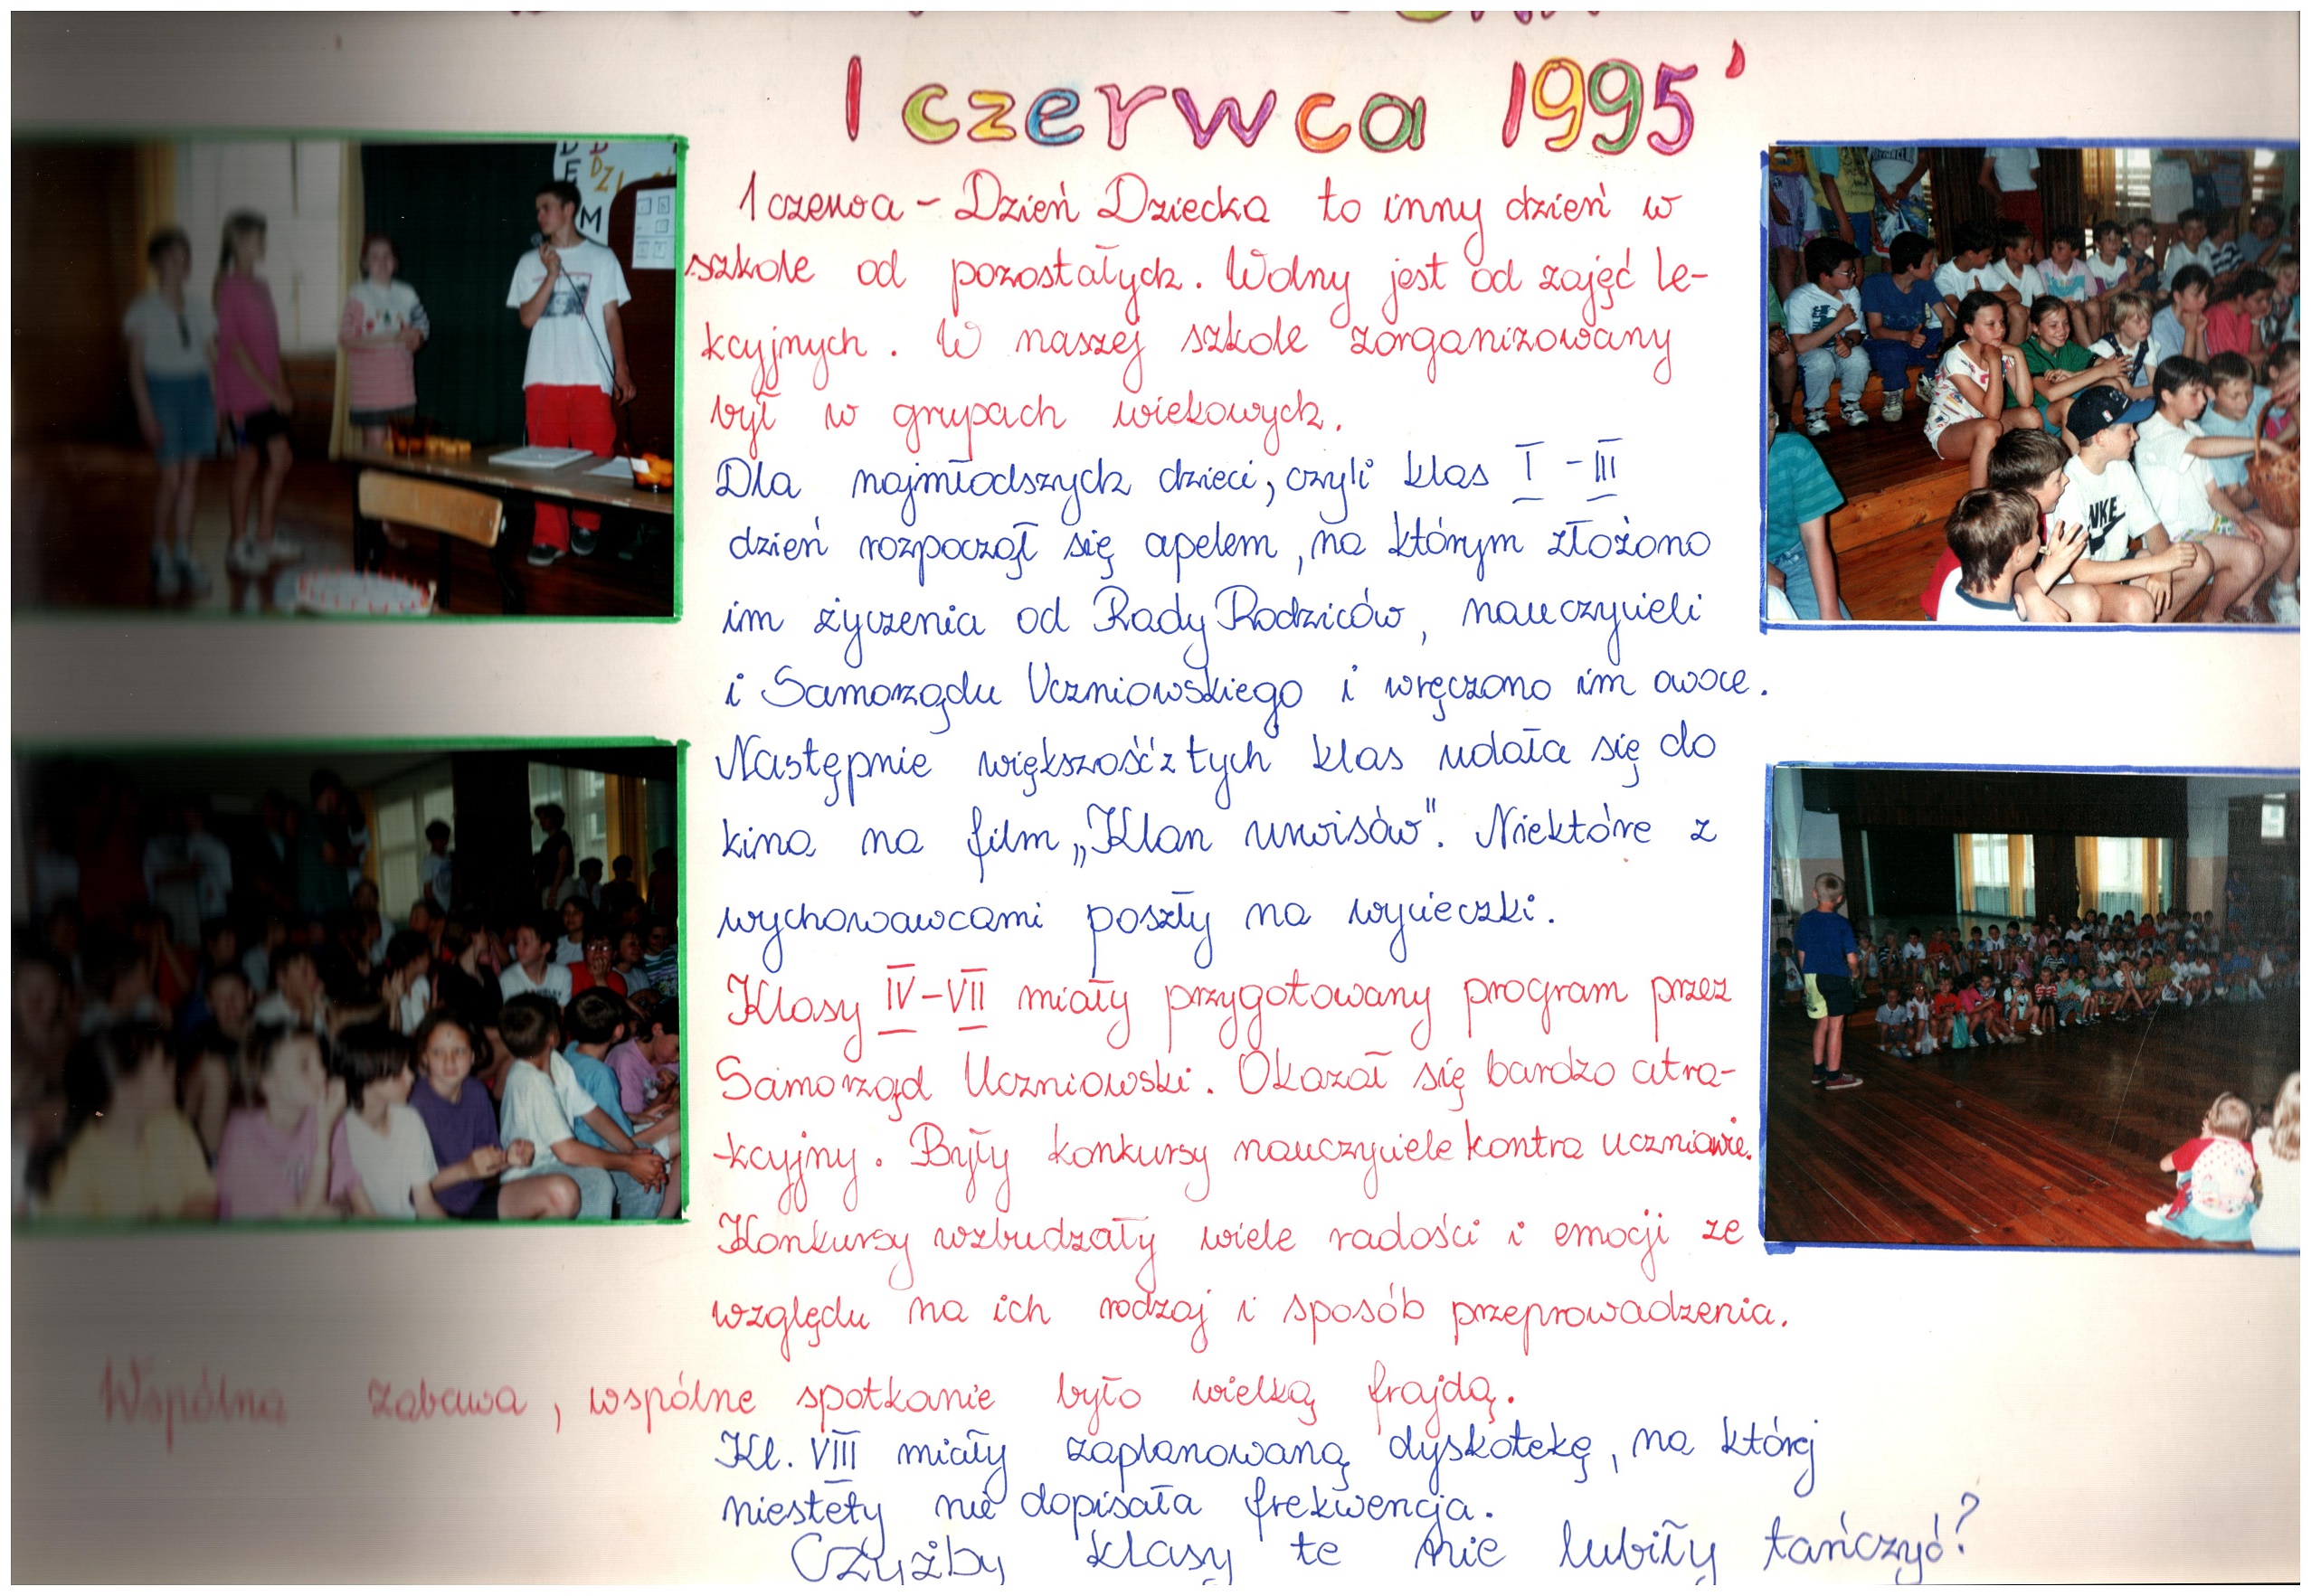 1 czerwca 1995'
1 czerwca - Dzień Dziecka to inny dzień w
szkole od pozostałych. Wolny jest od zajęć le-
kcyjnych. W naszej szkole zorganizowany
był w grupach wiekowych.
Dla najmłodszych dzieci, czyli klas I - III
dzień rozpoczął się apelem, na którym złożono
im życzenia od Rady Rodziców, nauczycieli
i Samorządu Uczniowskiego i wręczono im owoce.
Następnie większość z tych klas udała się do
kina na film „Klan urwisów". Niektóre z
wychowawcami poszły na wycieczki.
Klasy IV-VII miały przygotowany program przez
Samorząd Uczniowski. Okazał się bardzo atra-
-kcyjny. Były konkursy nauczyciele kontra uczniowie.
Konkursy wzbudzały wiele radości i emocji ze
względu na ich rodzaj i sposób przeprowadzenia.
Wspólna zabawa, wspólne spotkanie było wielką frajdą.
Kl. VIII miały zaplanowaną dyskotekę, na której
niestety nie dopisała frekwencja.
Czyżby klasy te nie lubiły tańczyć?